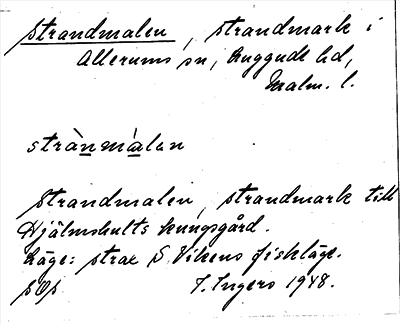 Strandmalen, strandmark i
Allerums sn, Luggude hd,
Malm. l.
strànmàlan
Strandmalen, strandmark till
Hjälmshults kungsgård.
Läge: strax S Vikens fiskläge.
I. Ingers 1948.